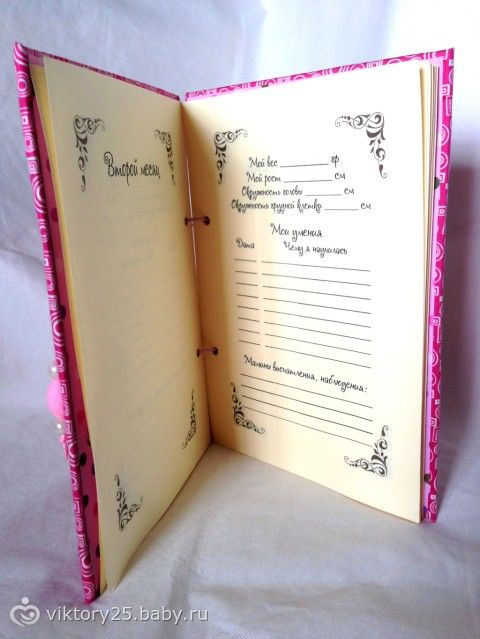 Второй месяц
Мой вес ________ гр
Мой рост ________ см
Окружность головы ______ см
Окружность грудной клетки ______ см
Мои умения
Дата Чему я научилась
Мамины впечатления, наблюдения:
viktory25.baby.ru